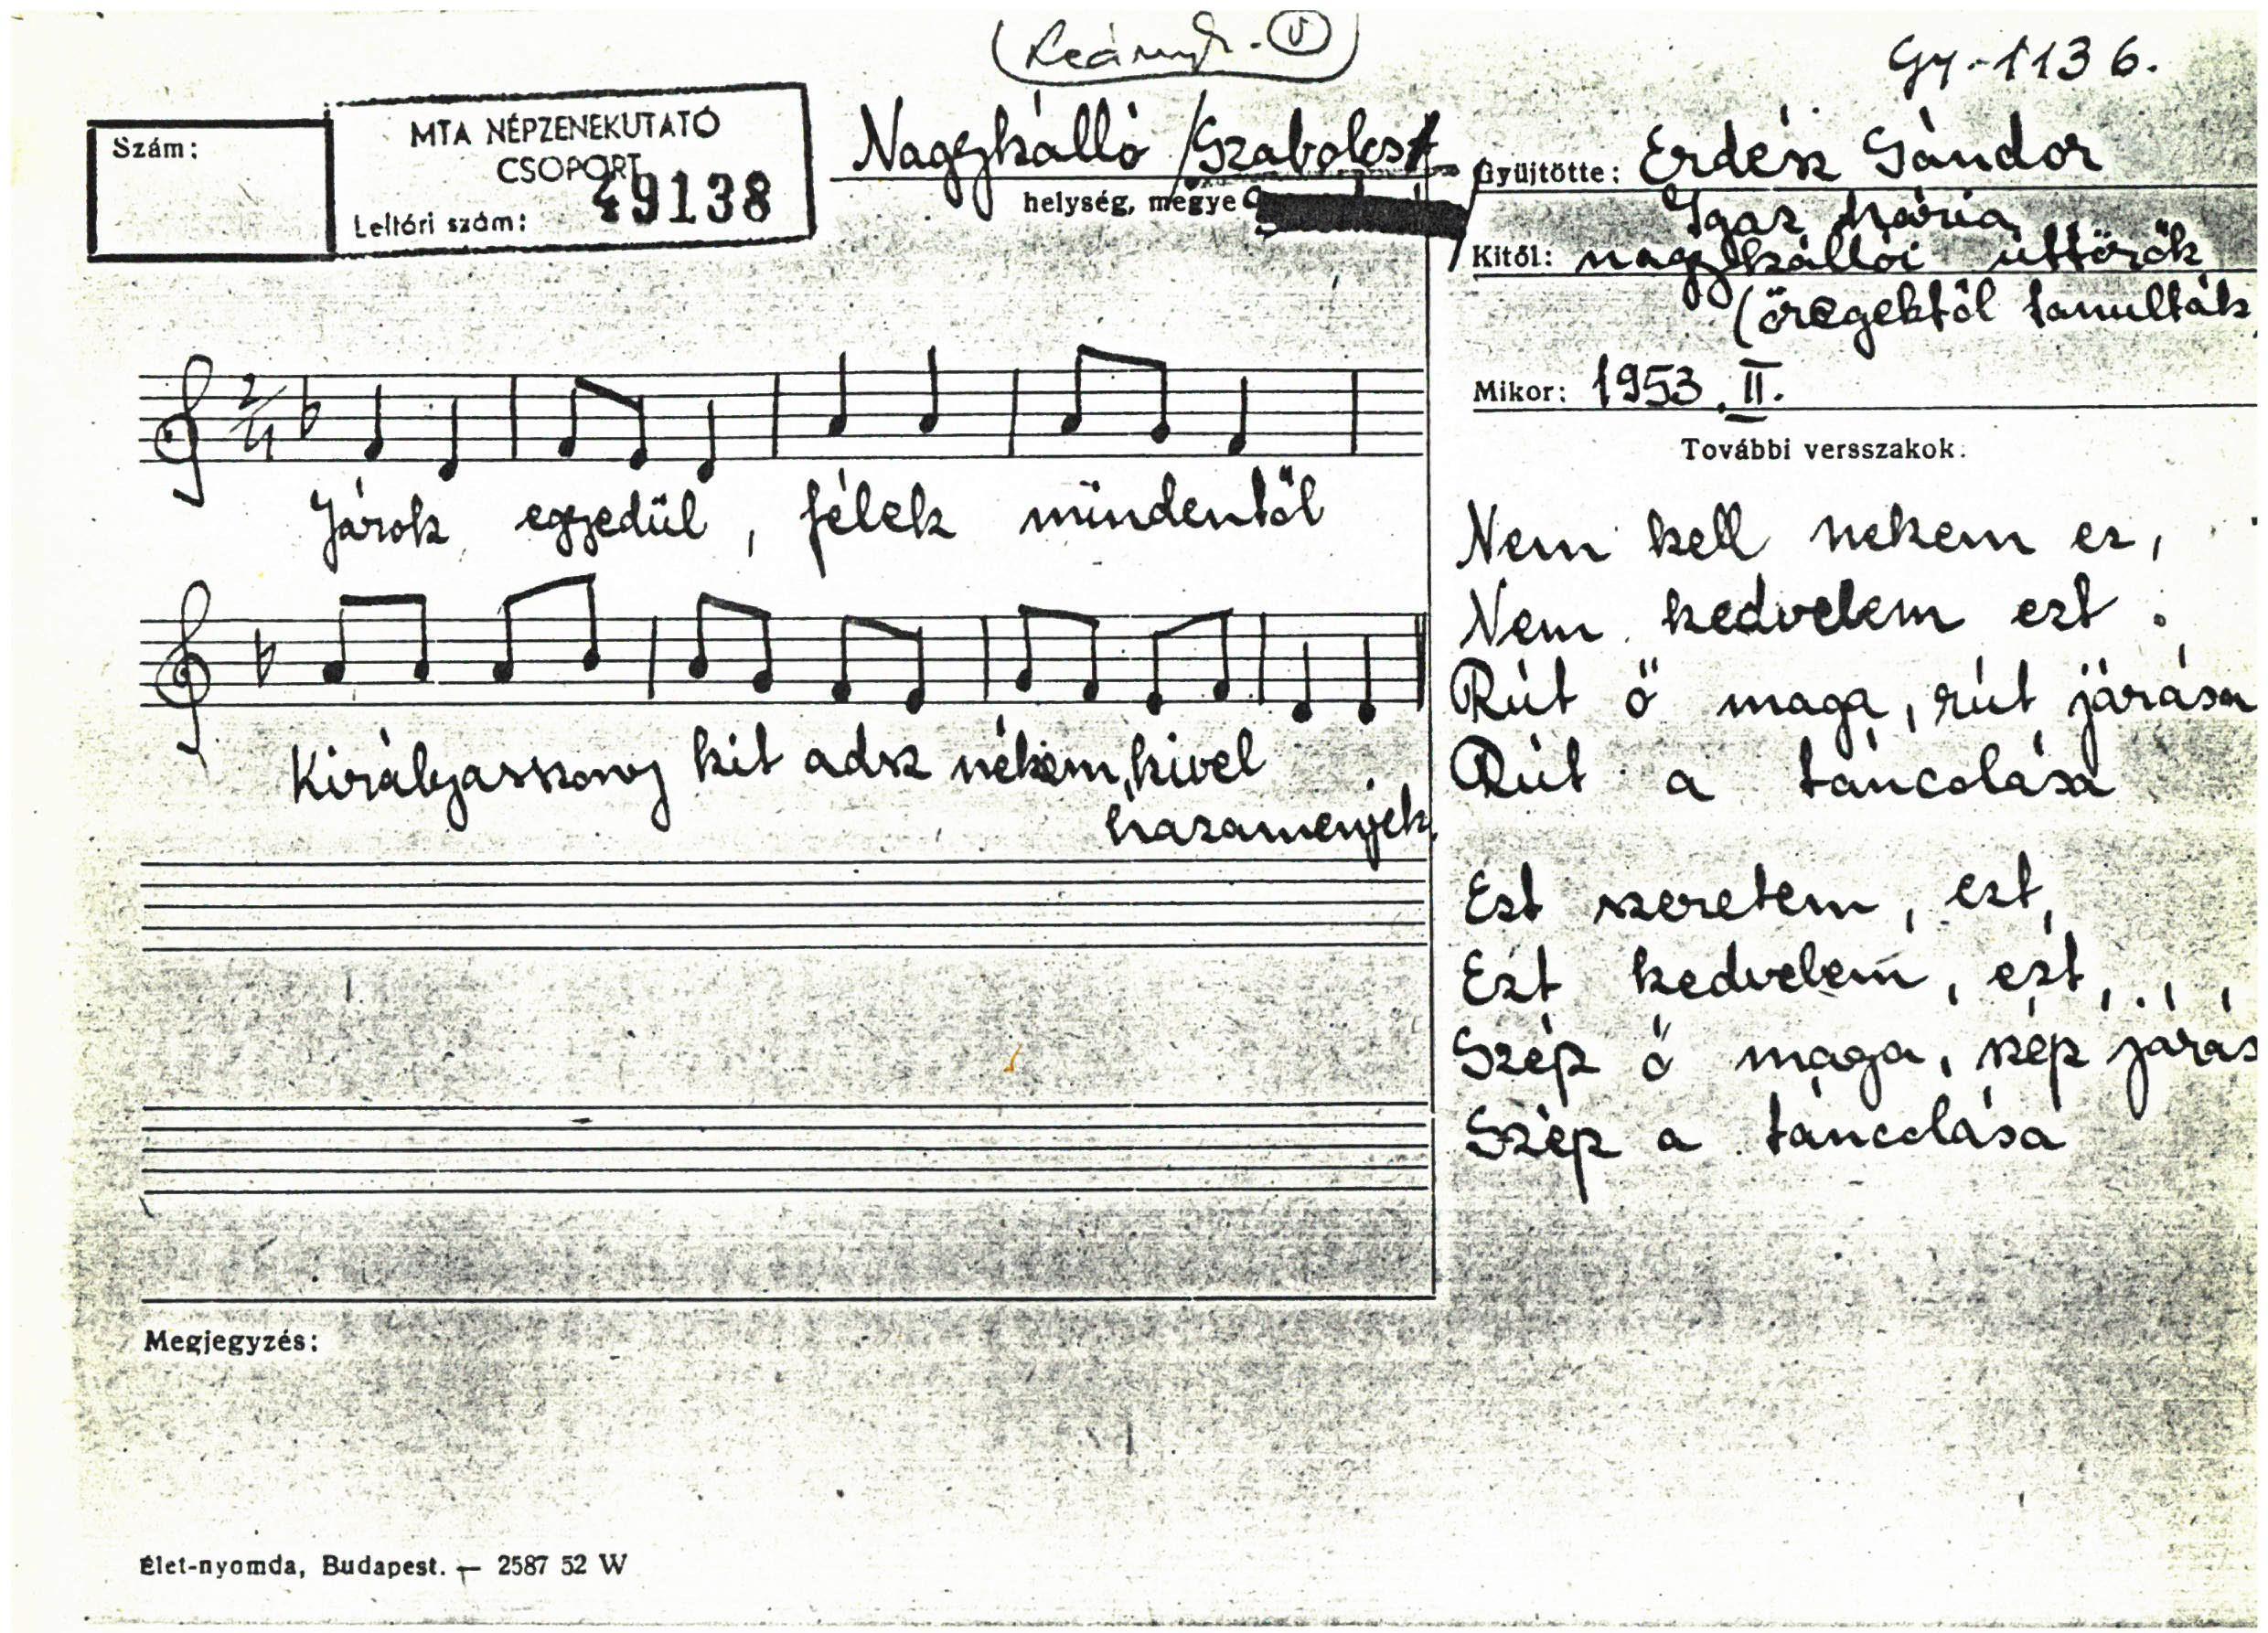 Gy-1136.
Szám:
MTA NÉPZENEKUTATÓ
CSOPORT
Leltári szám: 49138
Nagykálló /Szabolcs
helység, megye
Gyüjtötte: Erdész Sándor
Igaz Mária
Kitől: nagykállói úttörők
(öregektől tanulták
Mikor: 1953. II.
További versszakok:
2/4
Járok egyedül, félek mindentől
Királyasszony kit adsz nékem, kivel
hazamenjek.
Nem kell nekem ez,
Nem kedvelem ezt.
Rút ő maga, rút járása
Rút a táncolása
Ezt szeretem, ezt,
Ezt kedvelem, ezt,
Szép ő maga, szép járás
Szép a táncolása
Megjegyzés:
Élet-nyomda, Budapest. — 2587 52 W